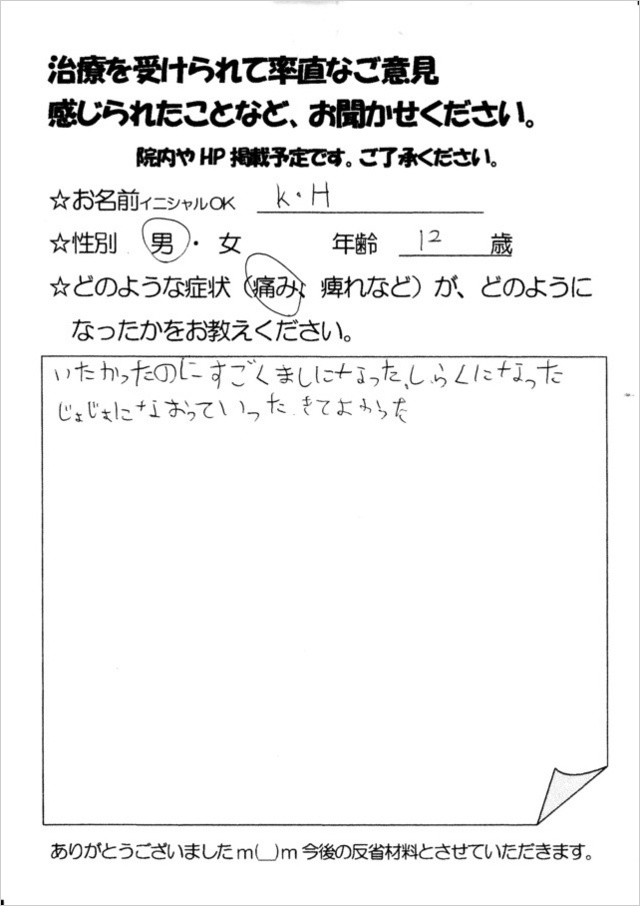 治療を受けられて率直なご意見
感じられたことなど、お聞かせください。
院内やHP掲載予定です。ご了承ください。
☆お名前イニシャルOK K・H
☆性別 男・女 年齢 12 歳
☆どのような症状（痛み、痺れなど）が、どのように
なったかをお教えください。
いたかったのにすごくましになった,しらくになった
じょじょになおっていった.きてよかった
ありがとうございましたm(__)m今後の反省材料とさせていただきます。